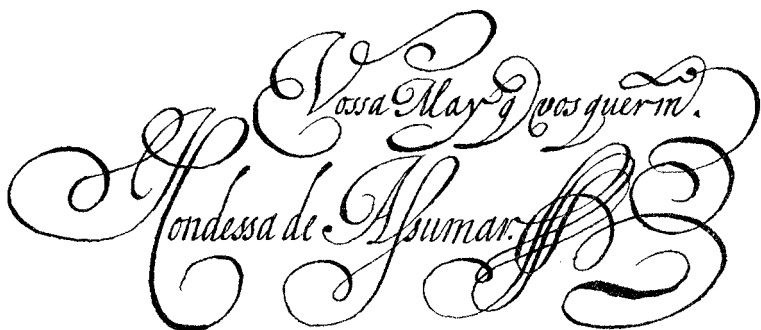 Vossa May q vos quer m.
Condessa de Assumar.